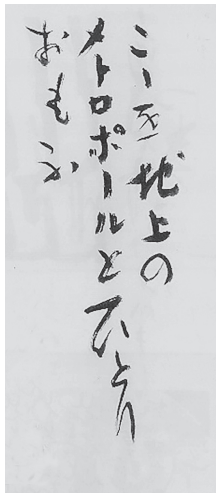 こゝを地上の
メトロポールとひとり
おもふ